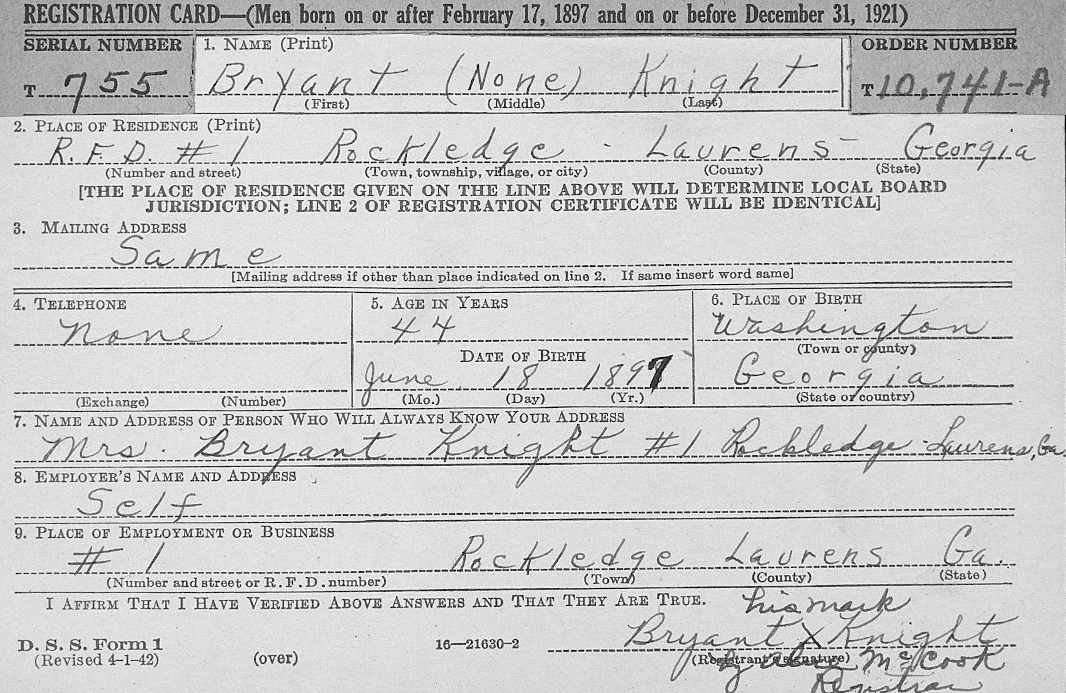 REGISTRATION CARD—(Men born on or after February 17, 1897 and on or before December 31, 1921)
SERIAL NUMBER 1. NAME (Print) ORDER NUMBER
T 755 Bryant (None) Knight T 10,741-A
(First) (Middle) (Last)
2. PLACE OF RESIDENCE (Print)
R.F.D. #1 Rockledge - Laurens - Georgia
(Number and street) (Town, township, village, or city) (County) (State)
[THE PLACE OF RESIDENCE GIVEN ON THE LINE ABOVE WILL DETERMINE LOCAL BOARD
JURISDICTION; LINE 2 OF REGISTRATION CERTIFICATE WILL BE IDENTICAL]
3. MAILING ADDRESS
Same
[Mailing address if other than place indicated on line 2. If same insert word same]
4. TELEPHONE 5. AGE IN YEARS 6. PLACE OF BIRTH
None 44 Washington
DATE OF BIRTH (Town or county)
June 18 1897 Georgia
(Exchange) (Number) (Mo.) (Day) (Yr.) (State or country)
7. NAME AND ADDRESS OF PERSON WHO WILL ALWAYS KNOW YOUR ADDRESS
Mrs. Bryant Knight #1 Rockledge - Laurens, Ga.
8. EMPLOYER'S NAME AND ADDRESS
Self
9. PLACE OF EMPLOYMENT OR BUSINESS
#1 Rockledge Laurens Ga.
(Number and street or R.F.D. number) (Town) (County) (State)
I AFFIRM THAT I HAVE VERIFIED ABOVE ANSWERS AND THAT THEY ARE TRUE.
his mark
D. S. S. Form 1 16—21630-2 Bryant X Knight
(Revised 4-1-42) (over) (Registrant's signature)
by McCook